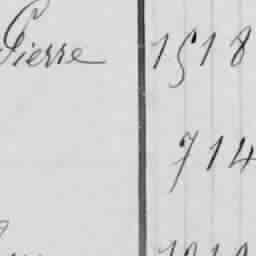 Pierre 1518
714